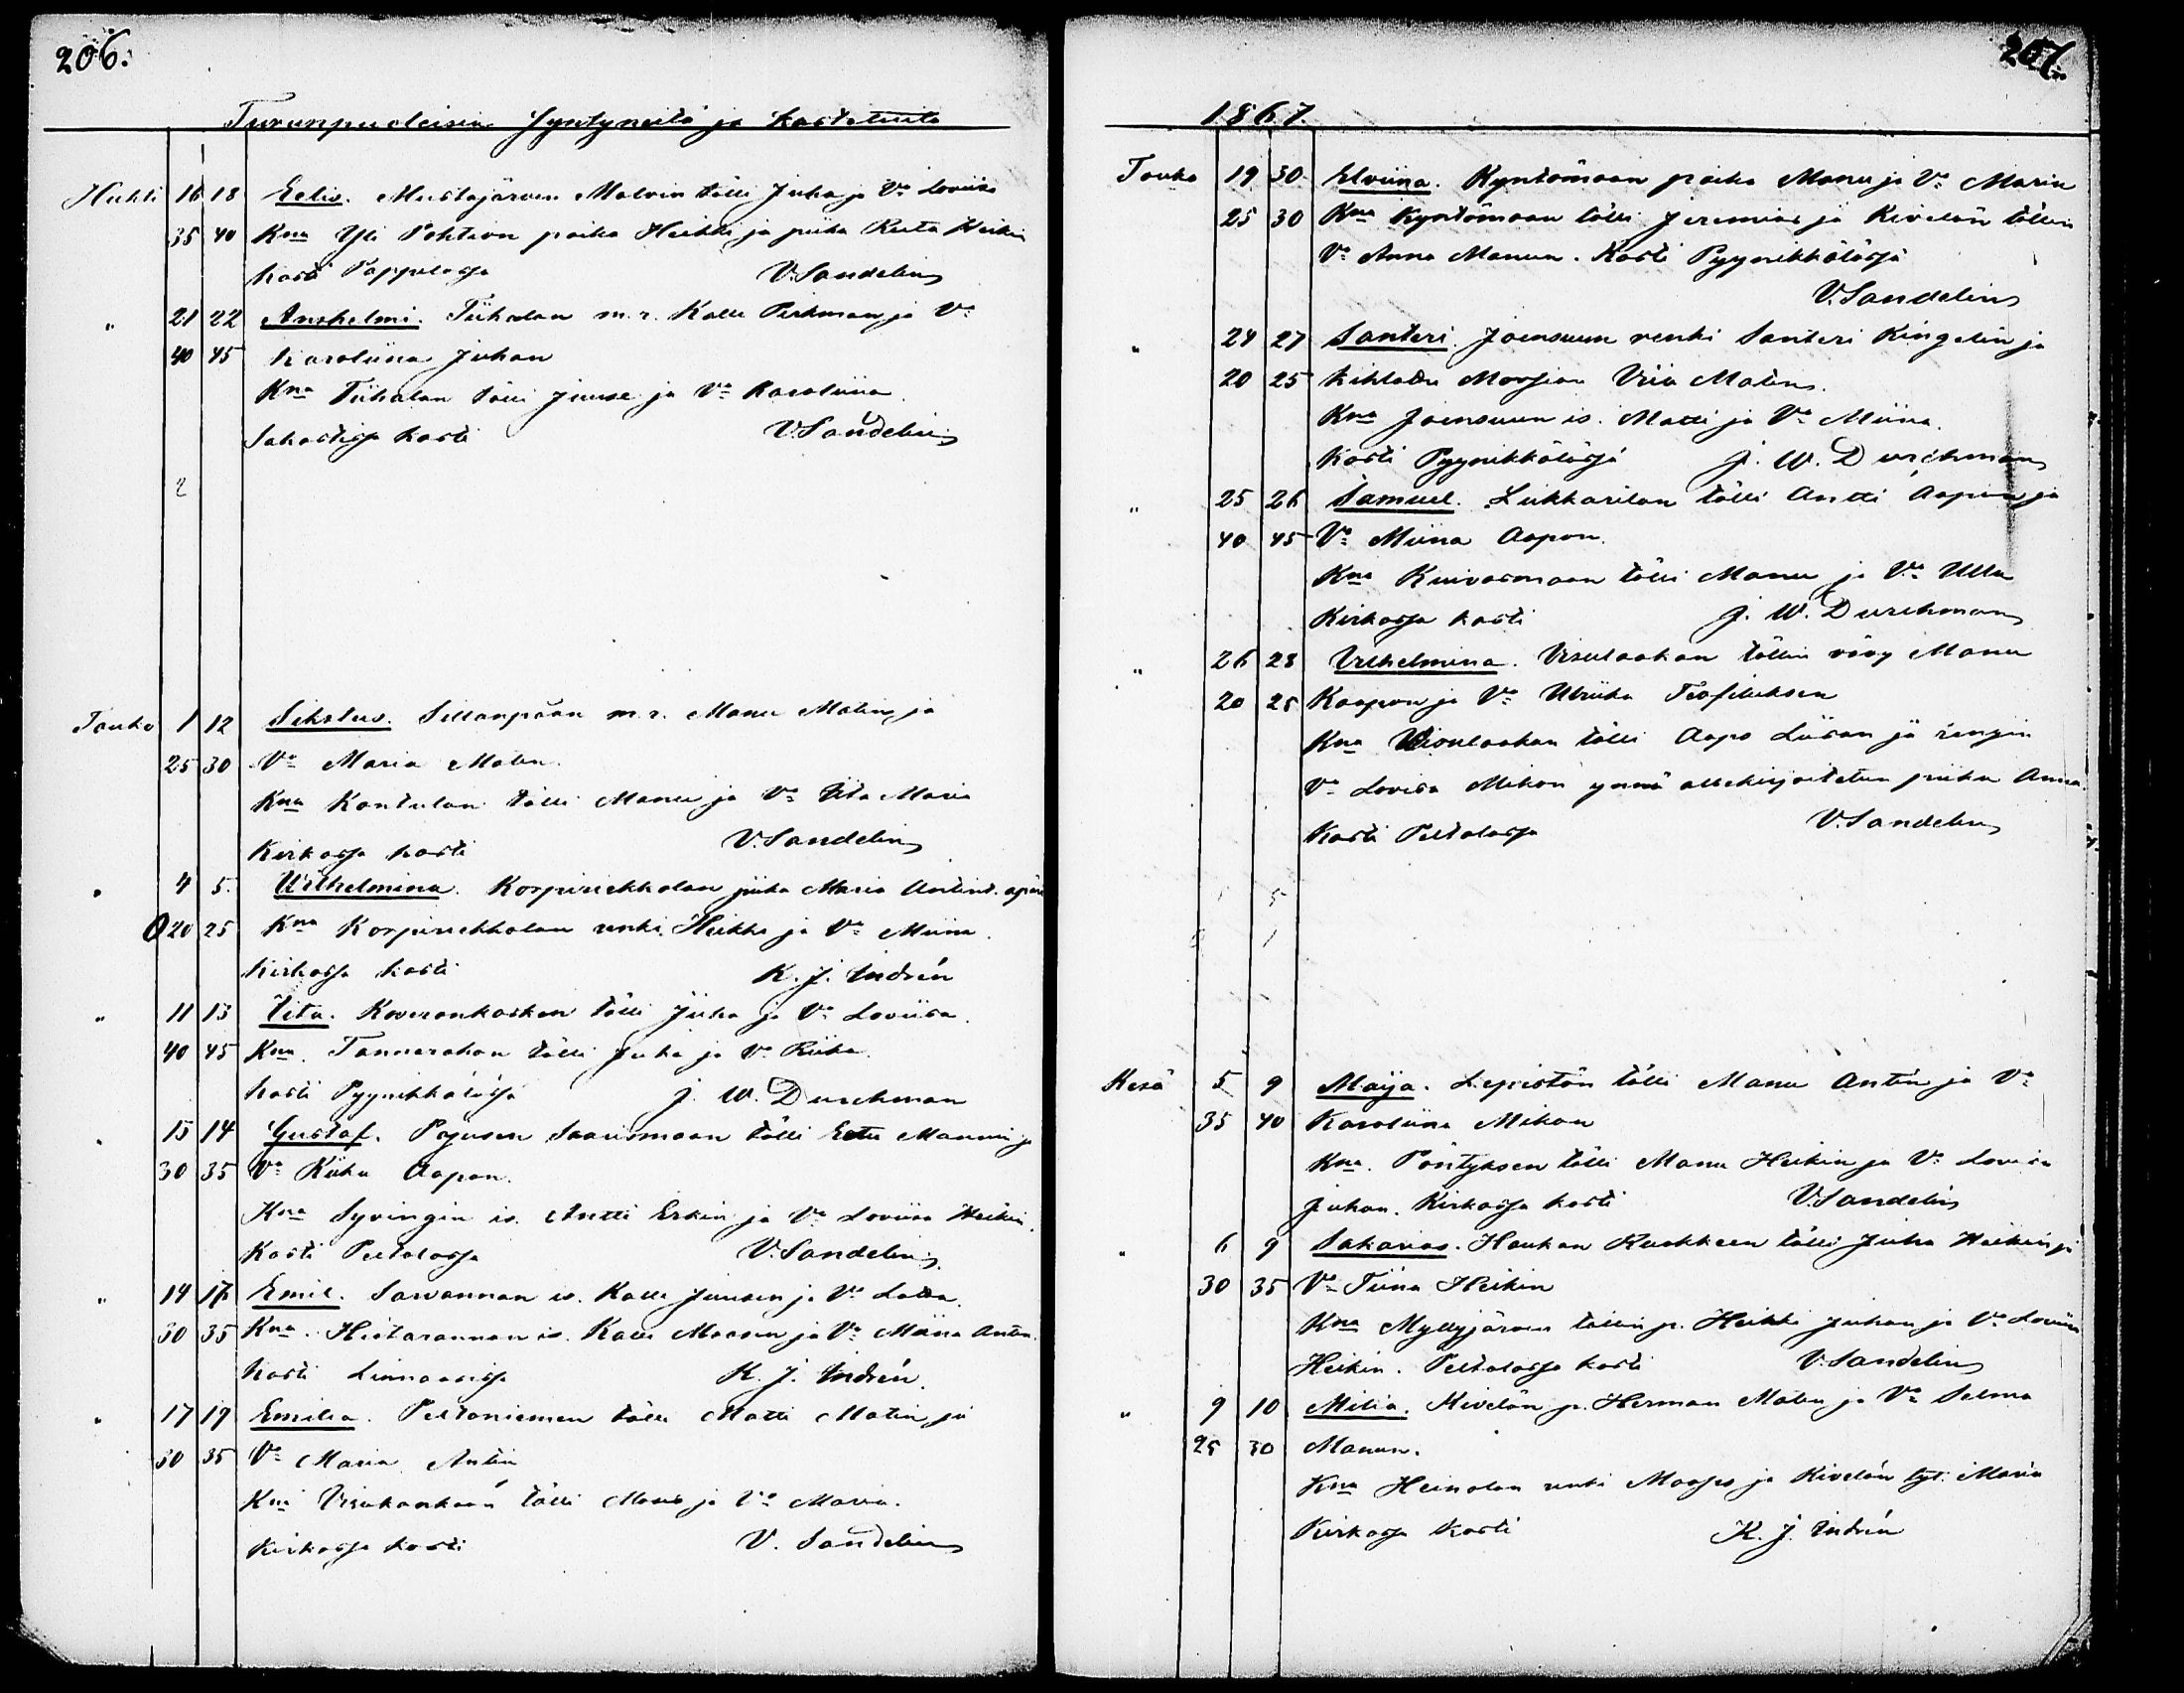 206.
Turunpuoleisia Syntyneitä ja kastetuita
Huhti 16 18 Eelis. Mustajärven Malvin tölli Juha ja Vo Loviisa
35 40 Kna Yli Pohtion poika Heikki ja piika Reeta Heikin
kasti Pappilassa V. Sandelin
" 21 22 Anshelmi. Tiihalan m. r. Kalle Perkman ja Vo
40 45 Karoliina Juhan
Kna Tiihalan tölli Juuse ja Vo Karoliina
Sakastissa kasti V. Sandelin
2
Touko 1 12 Sikstus. Sillanpään m. r. Manu Matin ja
25 30 Vo Maria Matin.
Kna Kontulan tölli Manu ja Vo Iita Maria
Kirkossa kasti V. Sandelin
" 4 5. Vilhelmina. Korpiriekkolan piika Maria Antint.
20 25 Kna Korpiriekkolan renki Heikki ja Vo Miina.
Kirkossa kasti K. J. Indrén
" 11 13 Iita. Koveronkosken tölli Juha ja Vo Loviisa.
40 45 Kna. Tannerahon tölli Juha ja Vo Riika.
kasti Pyynikkölässä J. W. Durchman
" 15 14 Gustaf. Pajusen Saarismaan tölli Eetu Manun ja
30 35 Vo Riika Aapon.
Kna Syvingin is. Antti Erkin ja Vo Loviisa Heikin.
Kasti Peltolassa V. Sandelin
" 14 17 Emil. Sarvannan is. Kalle Juusen ja Vo
30 35 Kna. Hietarannan is. Kalle Maasen ja Vo Miina Antin.
kasti Linnaasissa K. J. Indrén.
" 17 19 Emilia. Peltoniemen tölli Matti Matin ja
30 35 Vo Maria Antin
Kna Visakankaan tölli Manu ja Vo Maria.
Kirkossa kasti V. Sandelin
207.
1867.
Touko 19 30 Elviina. Kyntömaan poika Manu ja Vo Maria
25 30 Kna Kyntömaan tölli Jeremias ja Kivelän töllin
Vo Anna Manun. Kasti Pyynikkölässä
V. Sandelin
" 24 27 Santeri. Joensuun renki Santeri Ringelin ja
20 25 kihlattu Morsian Viia Matin.
Kna Joensuun is. Matti ja Vo Miina.
Kasti Pyynikkölässä J. W. Durchman
" 25 26 Samuel. Liikkarilan tölli Antti Aapon ja
40 45 Vo Miina Aapon.
Kna Kuivasmaan tölli Manu ja Vo Ulla
Kirkossa kasti J. W. Durchman
" 26 28 Vilhelmina. Visulaakan töllin vävy Manu
20 25 Kaapon ja Vo Ulriika Teofiluksen
Kna Visulaakan tölli Aapo Liisan ja rengin
Vo Lovisa Mikon ynnä allekirjoitetun piika Anna.
Kasti Peltolassa V. Sandelin
5
Kesä 5 9 Maija. Lepistön tölli Manu Antin ja Vo
35 40 Karoliina Mikon
Kna. Pöntyksen tölli Manu Heikin ja Vo Lovisa
Juhan. Kirkossa kasti V. Sandelin
" 6 9 Sakarias. Haukan Ruokkeen tölli Juha Heikin ja
30 35 Vo Tiina Heikin
Kna Myllyjärven töllin p. Heikki Juhan ja Vo Loviisa
Heikin. Peltolassa kasti V. Sandelin
" 9 10 Milia. Kivelän p. Herman Matin ja Vo Selma
25 30 Manun.
Kna Heinolan renki Maasse ja Kivelän tyt. Maria
Kirkossa kasti K. J. Indrén